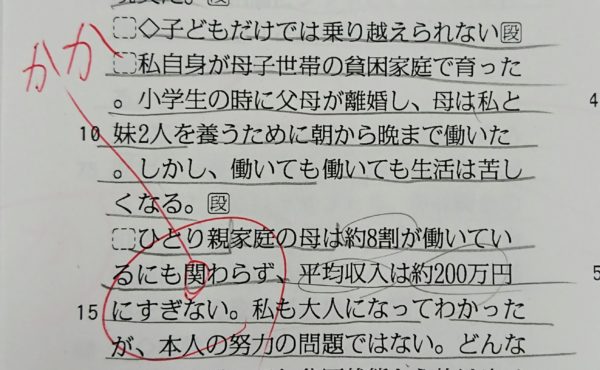 かか
◇子どもだけでは乗り越えられない段
私自身が母子世帯の貧困家庭で育った
。小学生の時に父母が離婚し、母は私と 4
10 妹2人を養うために朝から晩まで働いた
。しかし、働いても働いても生活は苦し
くなる。段
ひとり親家庭の母は約8割が働いてい
るにも関わらず、平均収入は約200万円 5
15 にすぎない。私も大人になってわかった
が、本人の努力の問題ではない。どんな